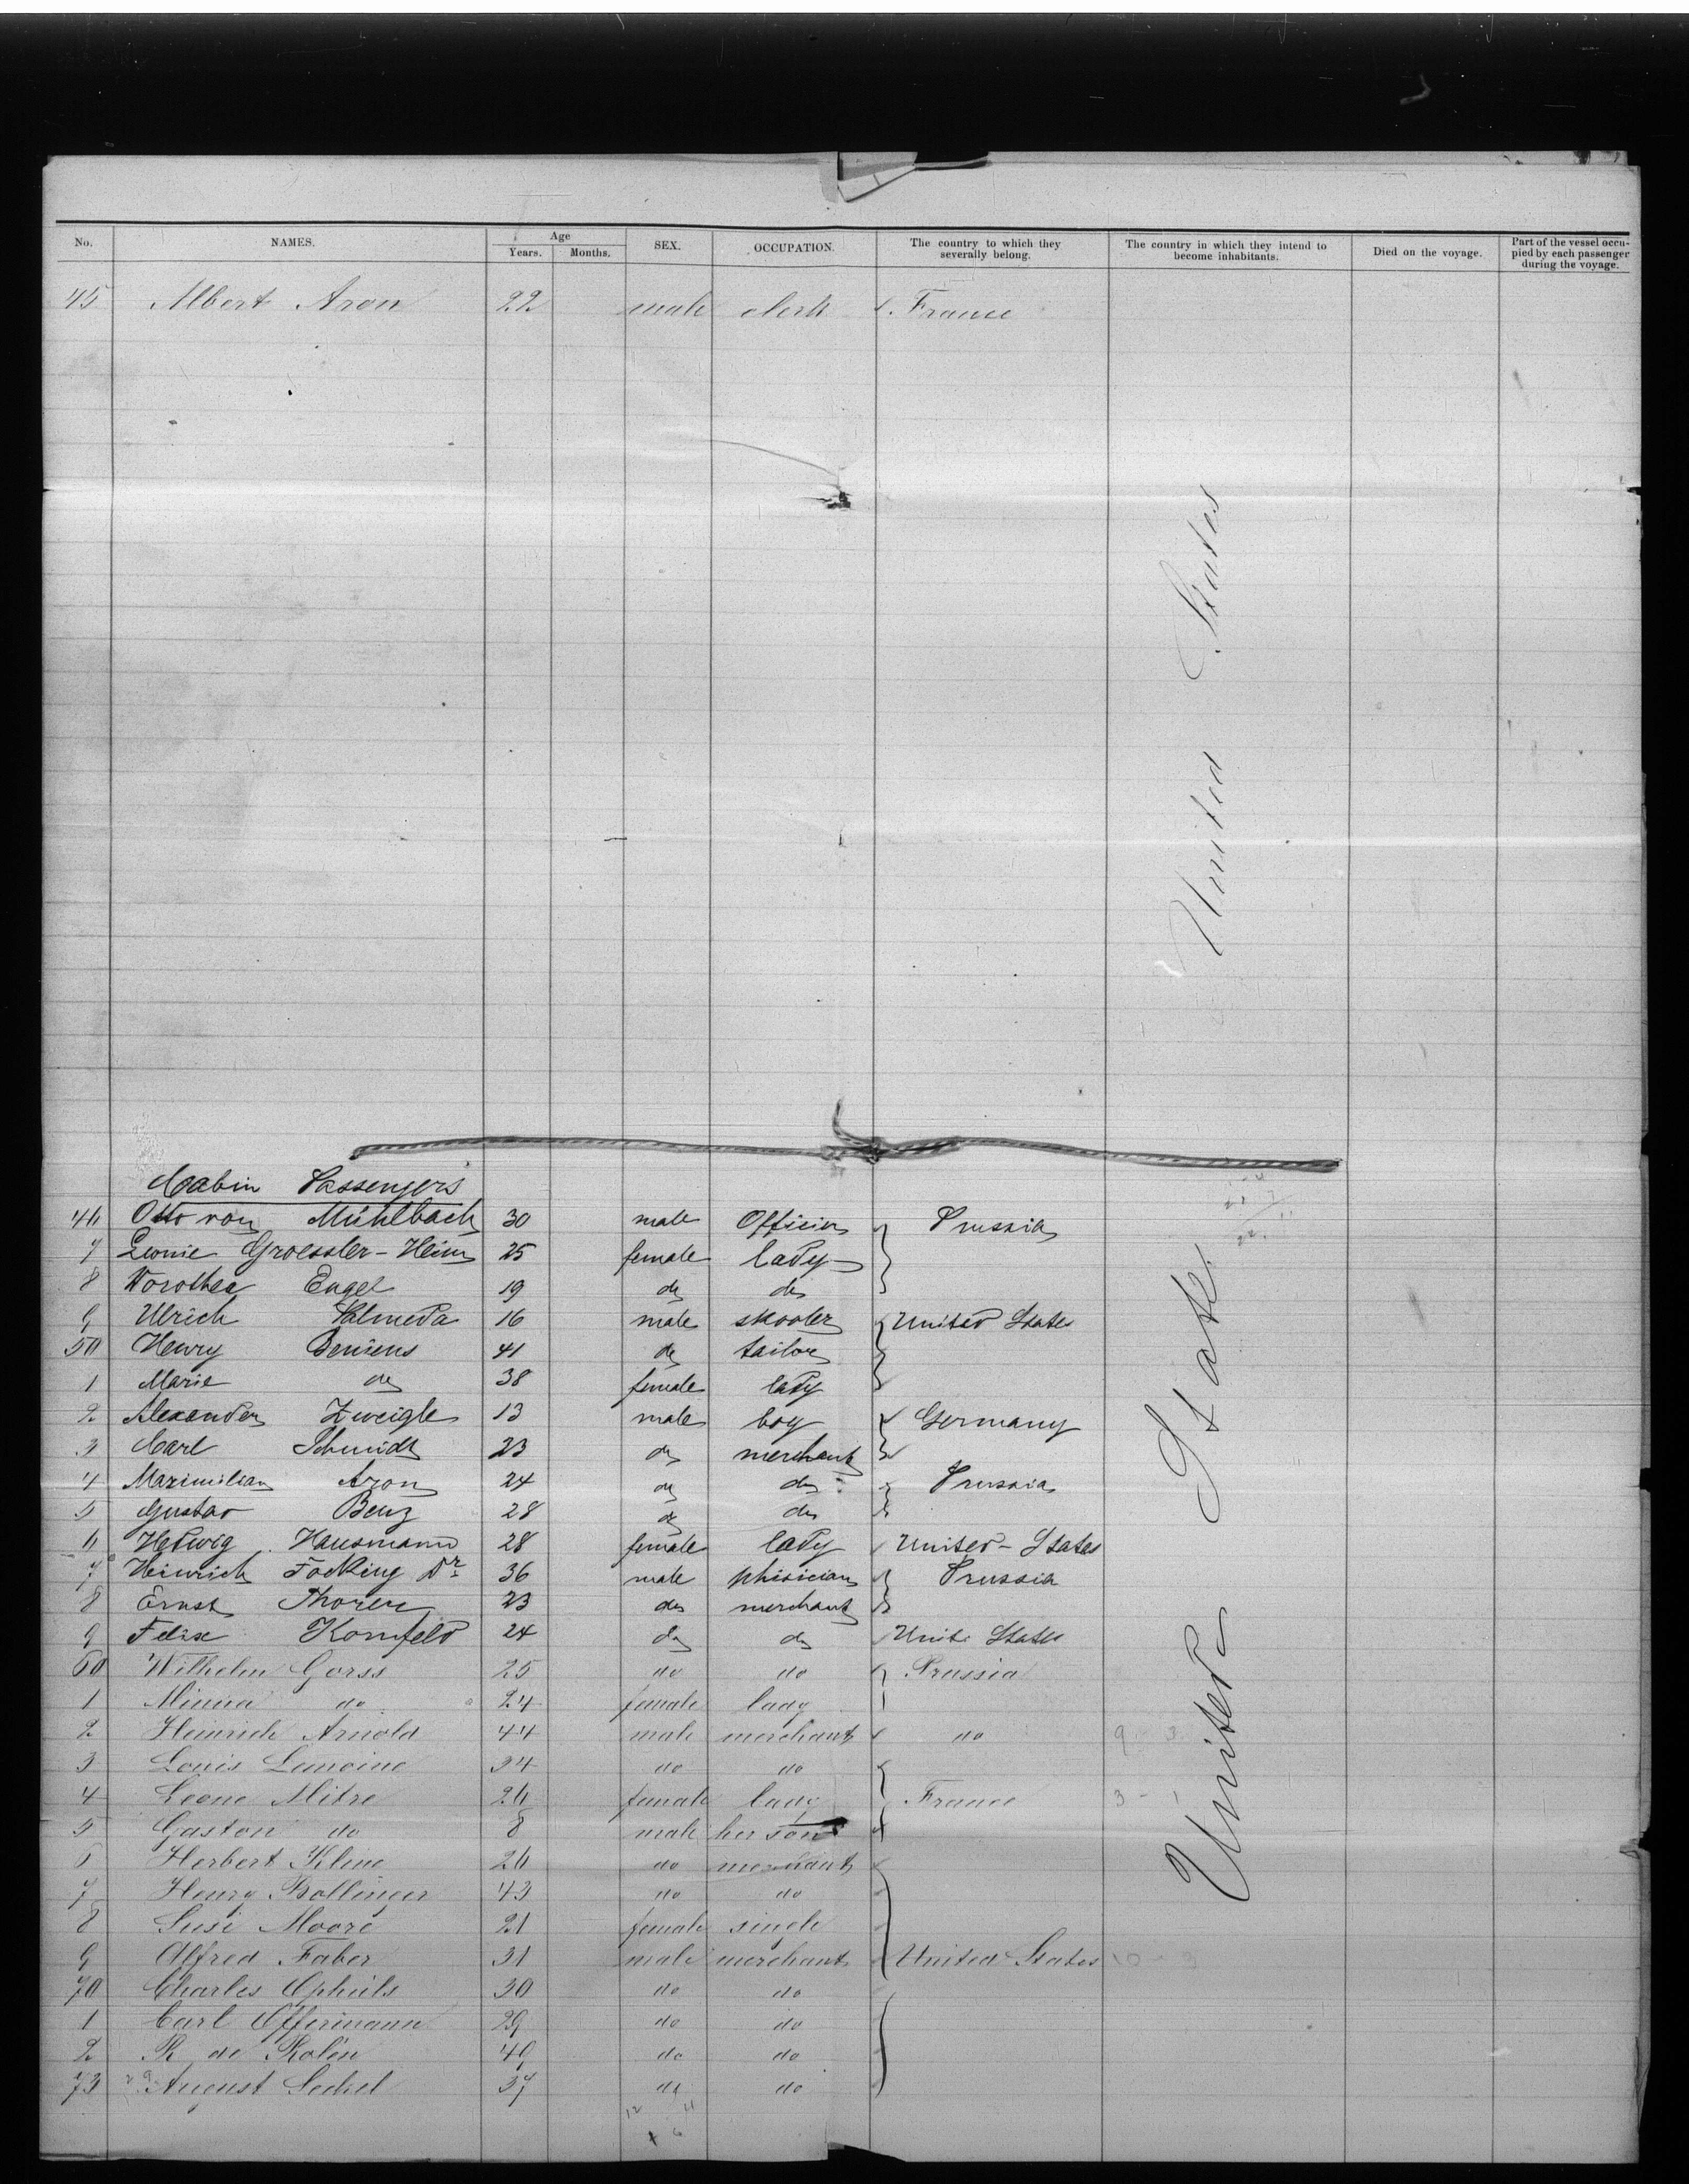 No. NAMES. Age Years. Months. SEX. OCCUPATION. The country to which they severally belong. The country in which they intend to become inhabitants. Died on the voyage. Part of the vessel occupied by each passenger during the voyage.
45 Albert Aron 22 male clerk France
United States
Cabin Passengers
46 Otto von Mühlbach 30 male Officier Prussia
7 Leonie Groessler-Heim 25 female lady
8 Dorothea Engel 19 do do
9 Ulrich Almeda 16 male skooler United States
50 Henry 41 do tailor
1 Marie do 38 female lady
2 Alexander Zweigle 13 male boy Germany
3 Carl Schmidt 23 do merchant
4 Maximilian Aron 24 do do Prussia
5 Gustav Benz 28 do do
6 Hedwig Hausmann 28 female lady United-States
7 Heinrich Focking Dr 36 male phisician Prussia
8 Ernst 23 do merchant
9 Felix Kornfeld 24 do do Unite States
60 Wilhelm Gorss 25 do do Prussia
1 Minna do 24 female lady
2 Heinrich Arnold 44 male merchant do 9 - 3
3 Louis Lemoine 34 do do
4 Leone Mitre 26 female lady France 3 - 1
5 Gaston do 8 male her son
6 Herbert Kline 26 do merchant
7 Henry Bollinger 43 do do
8 Susi Moore 21 female single
9 Alfred Faber 31 male merchant United States 10 - 3
70 Charles Ophüls 30 do do
1 Carl Offermann 29 do do
2 R. de Rolén 40 do do
73 August Sechel 37 do do
United State.